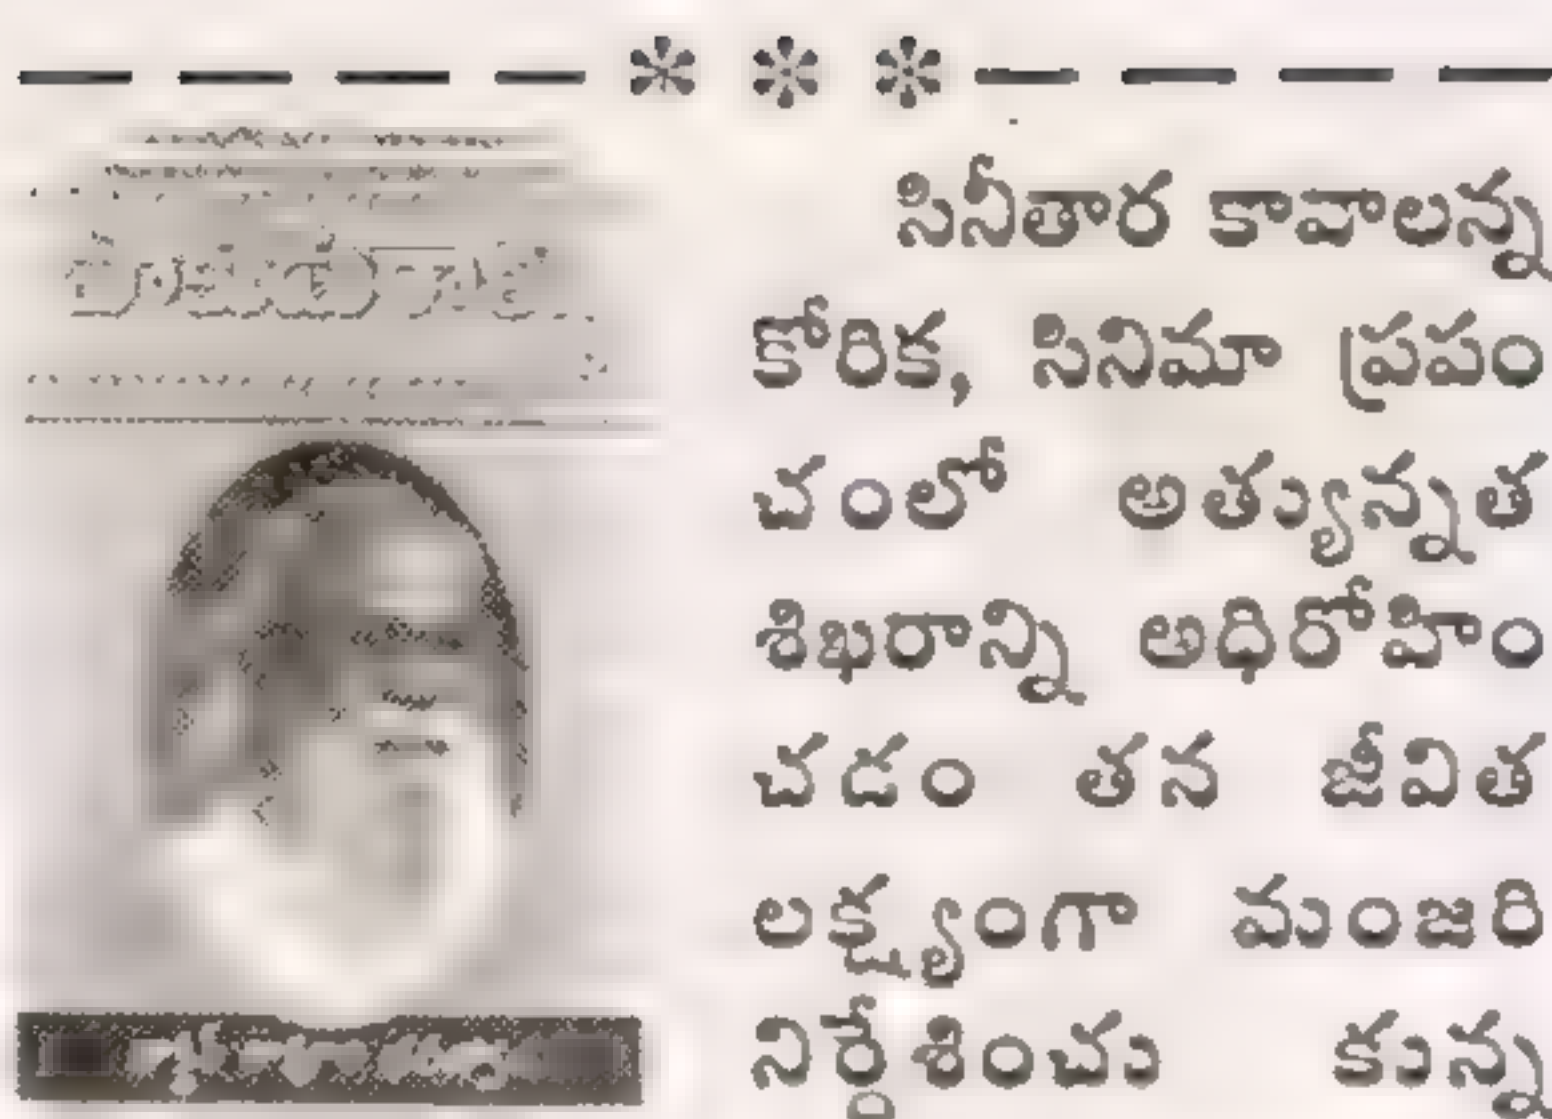 సినీతార కావాలన్న
కోరిక, సినిమా ప్రపం
చంలో అత్యున్నత
శిఖరాన్ని అధిరోహిం
చడం తన జీవిత
లక్ష్యంగా మంజరి
నిర్దేశించు కున్న